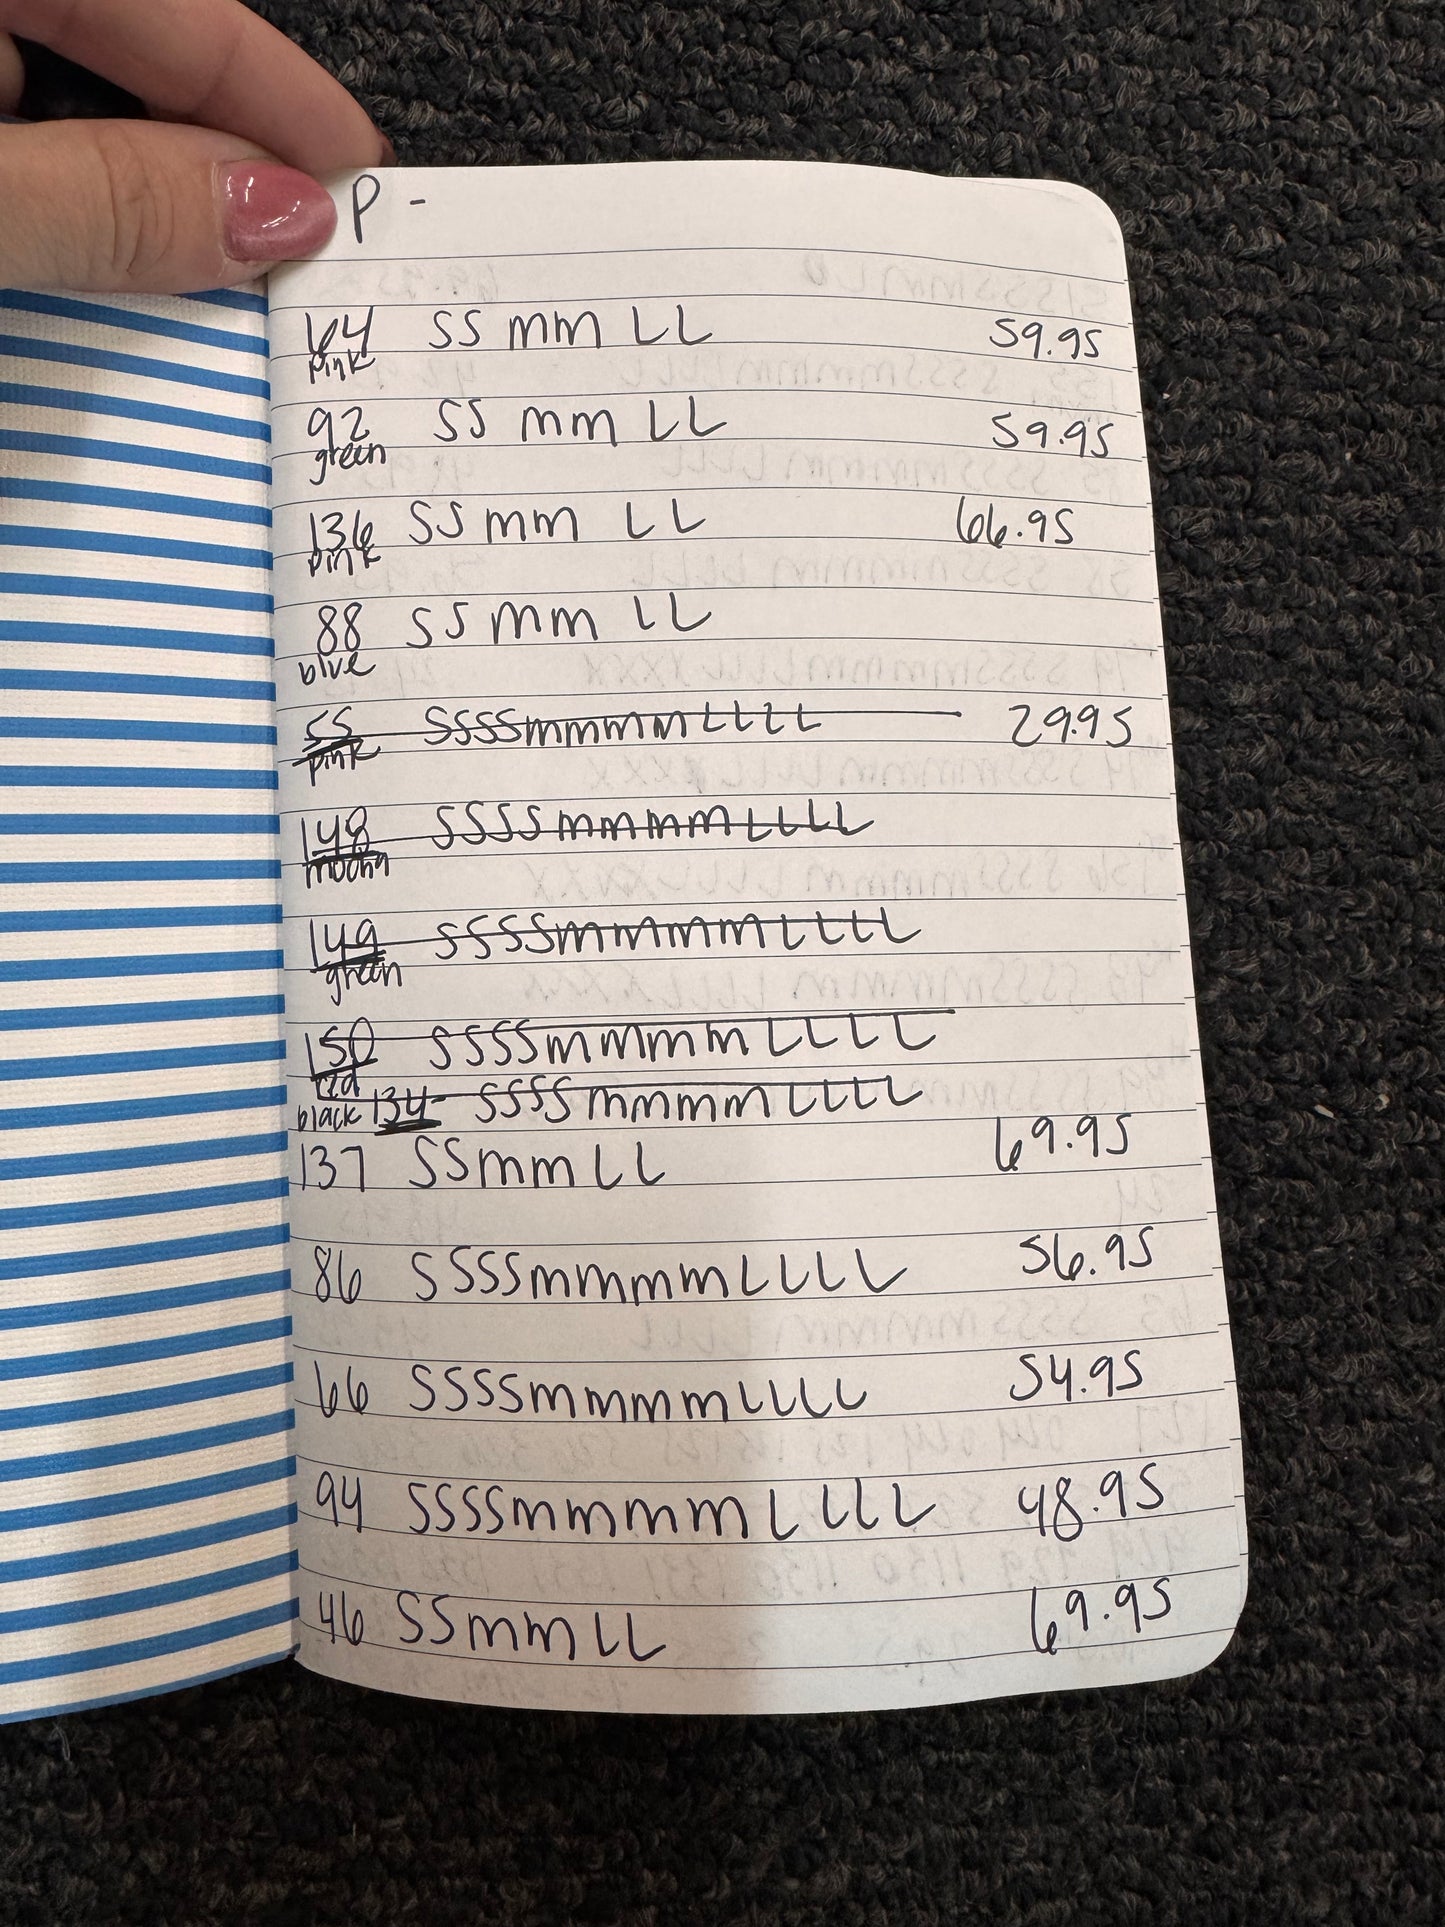 P -
64 SS mm LL 59.95
pink
92 SS mm LL 59.95
green
136 SS mm LL 66.95
pink
88 SS mm LL
blue
55 SSSSmmmmLLLL 29.95
pink
148 SSSSmmmmLLLL
mocha
149 SSSSmmmmLLLL
green
150 SSSSmmmmLLLL
red
black 134 SSSSmmmmLLLL
137 SSmmLL 69.95
86 SSSSmmmmLLLL 56.95
66 SSSSmmmmLLLL 54.95
94 SSSSmmmmLLLL 48.95
46 SSmmLL 69.95